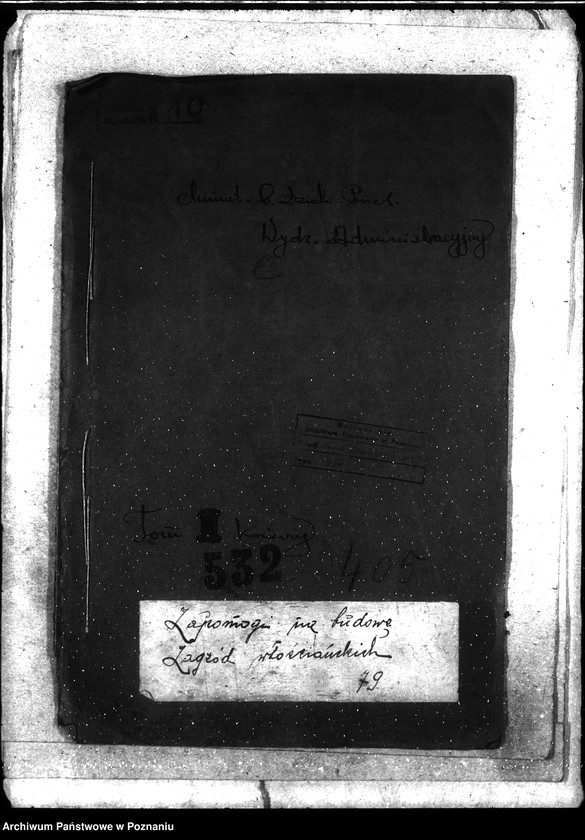 10
Minist. b. Dziel. Prus.
Wydz. Administracyjny
Tom I
532
405
Zapomogi na budowę
Zagród włościańskich
79
Archiwum Państwowe w Poznaniu